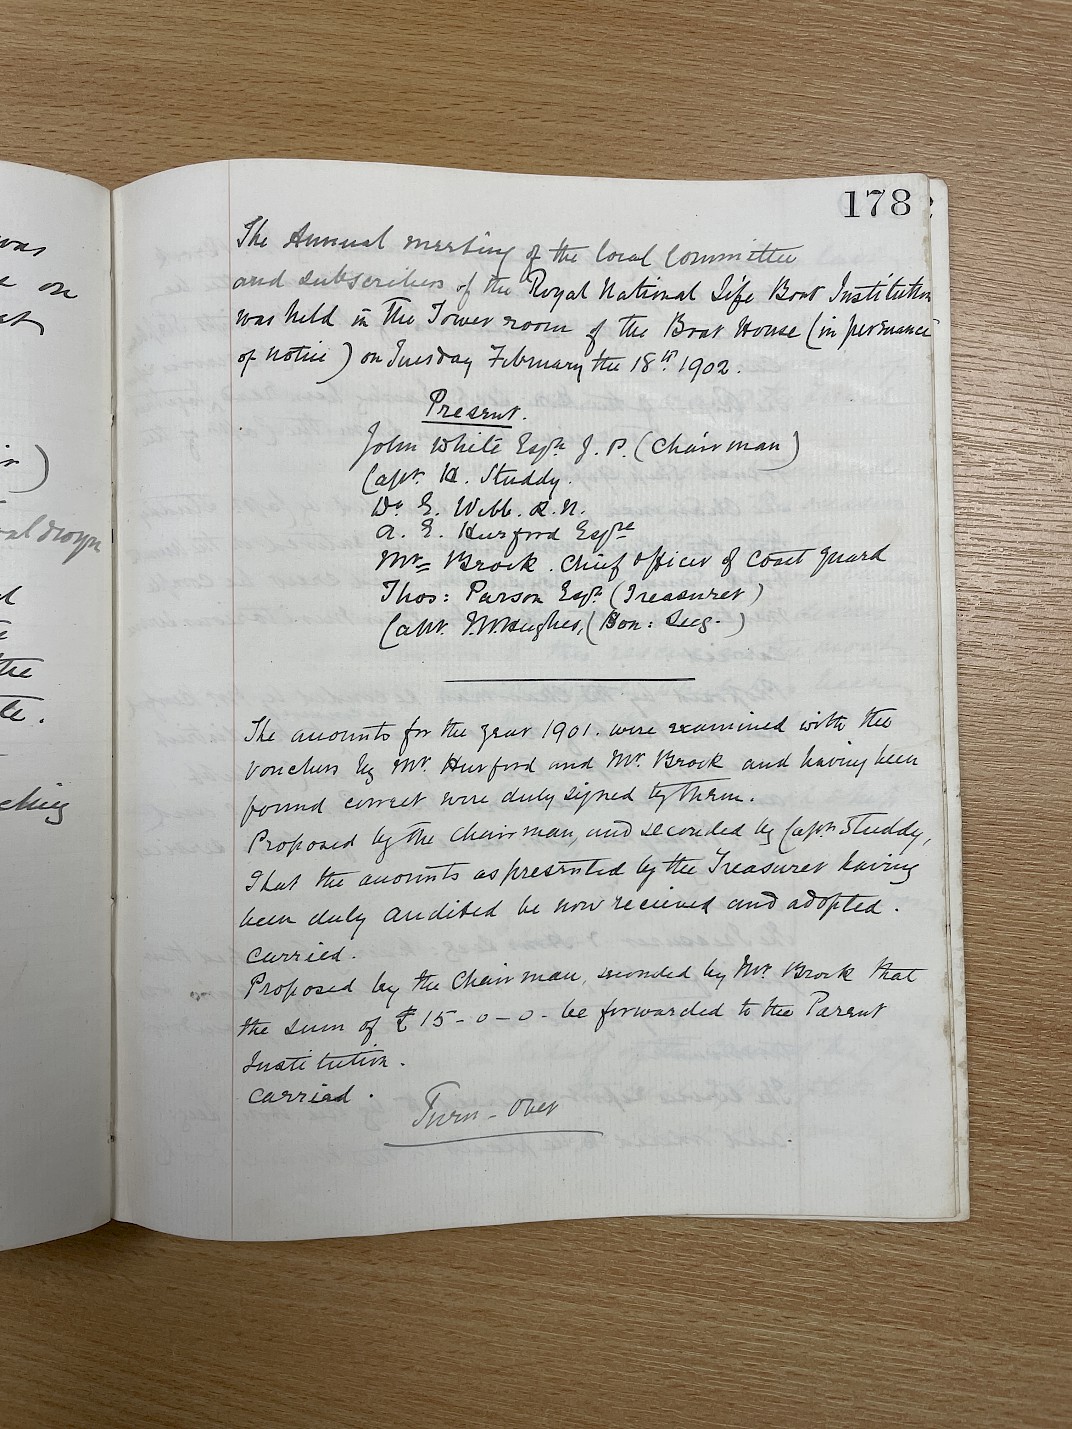 178
The Annual meeting of the local Committee
and subscribers of the Royal National Life Boat Institution
was held in the Tower room of the Boat House (in persuance
of notice) on Tuesday February the 18th 1902.
Present.
John White Esqr. J. P. (Chairman)
Capt. H. Studdy.
Dr. E. Webb. R. N.
A. E. Hurford Esqre
Mr. Brock. Chief Officer of Coast guard
Thos: Parson Esqr. (Treasurer)
Capt. Hughes, (Hon: Secy.)
The accounts for the year 1901. were examined with the
vouchers by Mr. Hurford and Mr. Brock and having been
found correct were duly signed by them.
Proposed by the Chairman, and seconded by Capt. Studdy,
That the accounts as presented by the Treasurer having
been duly audited be now recieved and adopted.
Carried.
Proposed by the Chairman, seconded by Mr. Brock that
the sum of £15-0-0- be forwarded to the Parent
Institution.
Carried.
Turn-over
was
on
the